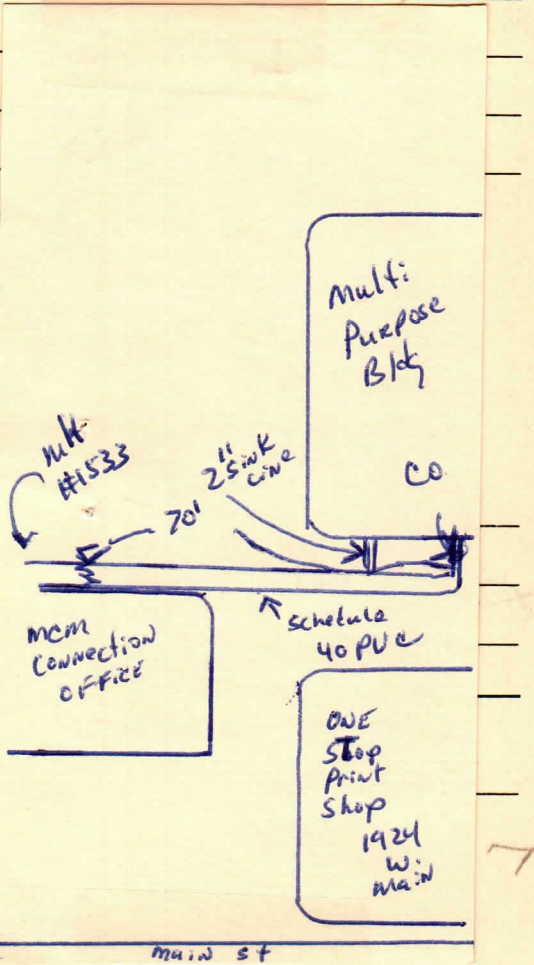 Multi
Purpose
Bldg
MH
#1533
2" Sink
Line
CO
70'
schedule
40 PVC
MCM
CONNECTION
OFFICE
ONE
STop
Print
Shop
1924
W.
Main
Main St